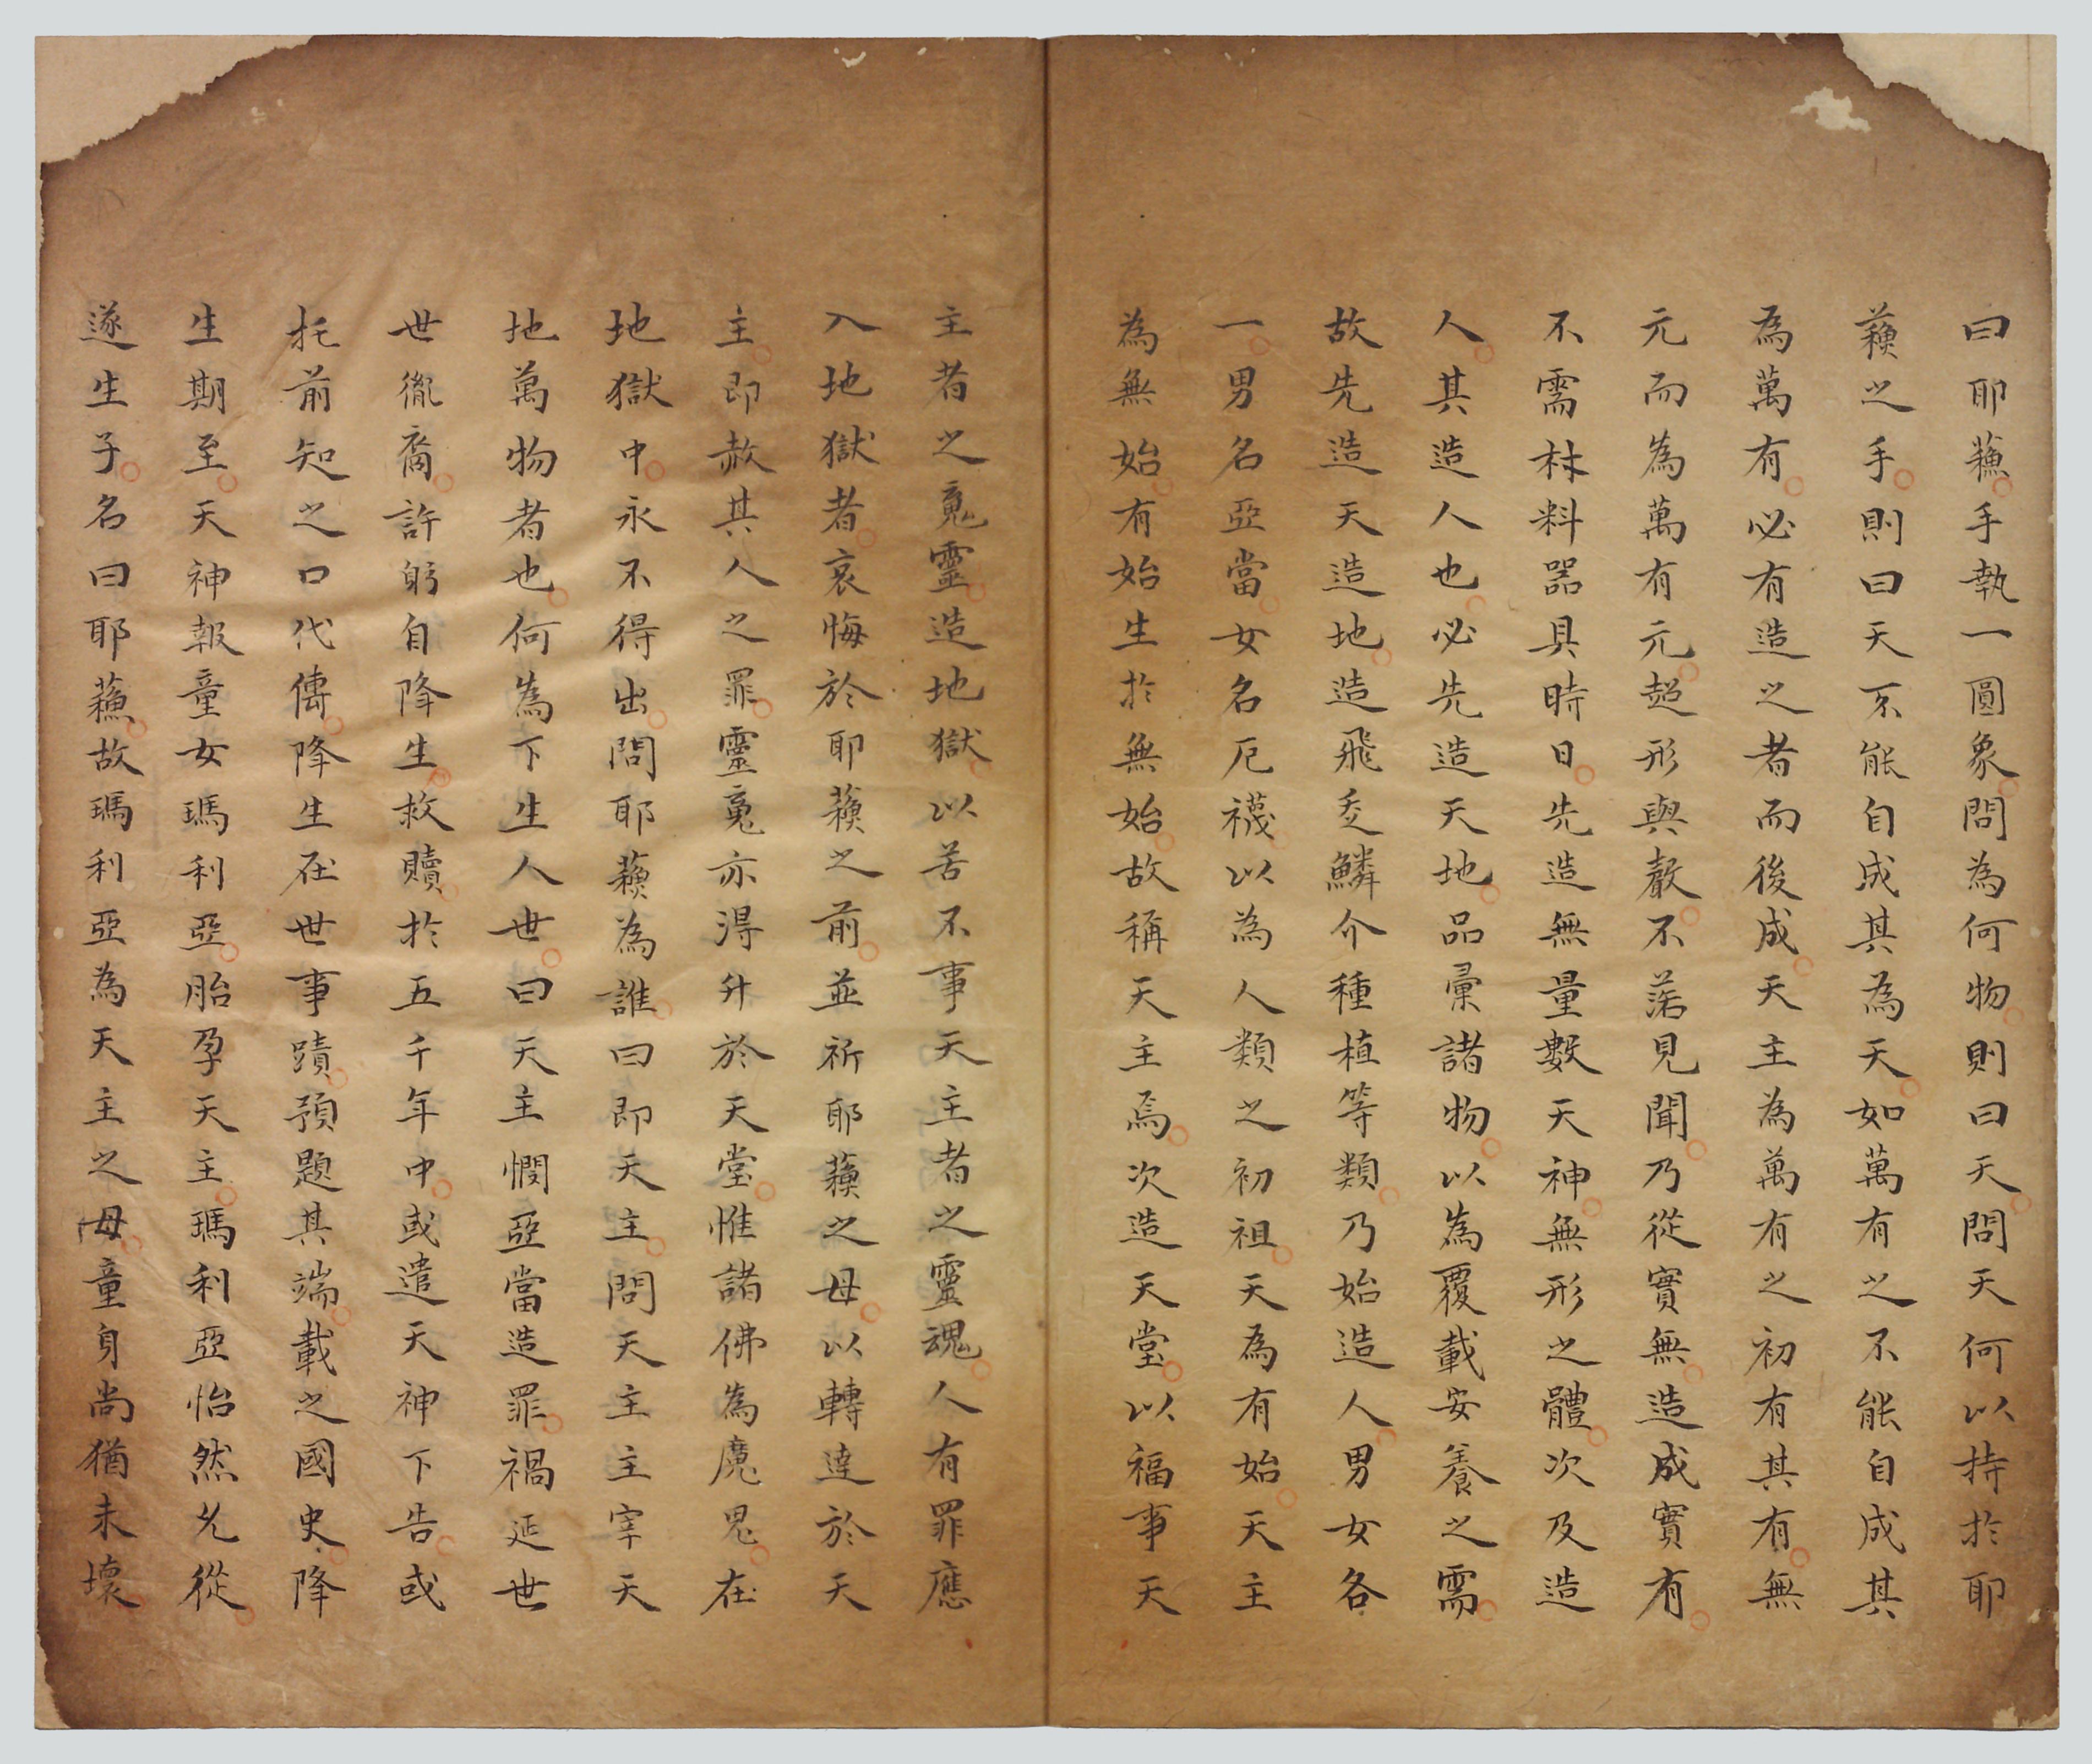 曰耶蘓手執一圓象問為何物則曰天問天何以持於耶
蘓之手則曰天不能自成其為天如萬有之不能自成其
為萬有必有造之者而後成天主為萬有之初有其有無
元而為萬有元超形與聲不落見聞乃從實無造成實有
不需材料器具時日先造無量數天神無形之體次及造
人其造人也必先造天地品彙諸物以為覆載安養之需
故先造天造地造飛走鱗介種植等類乃始造人男女各
一男名亞當女名厄襪以為人類之初祖天為有始天主
為無始有始生於無始故稱天主焉次造天堂以福事天
主者之䰟靈造地獄以苦不事天主者之靈魂人有罪應
入地獄者哀悔於耶蘓之前並祈耶蘓之母以轉達於天
主即赦其人之罪靈䰟亦得升於天堂惟諸佛為魔鬼在
地獄中永不得出問耶蘓為誰曰即天主問天主主宰天
地萬物者也何為下生人世曰天主憫亞當造罪禍延世
世胤裔許躬自降生救贖於五千年中或遣天神下告或
托前知之口代傳降生在世事蹟預題其端載之國史降
生期至天神報童女瑪利亞胎孕天主瑪利亞怡然允從
遂生子名曰耶蘓故瑪利亞為天主之母童身尚猶未壞